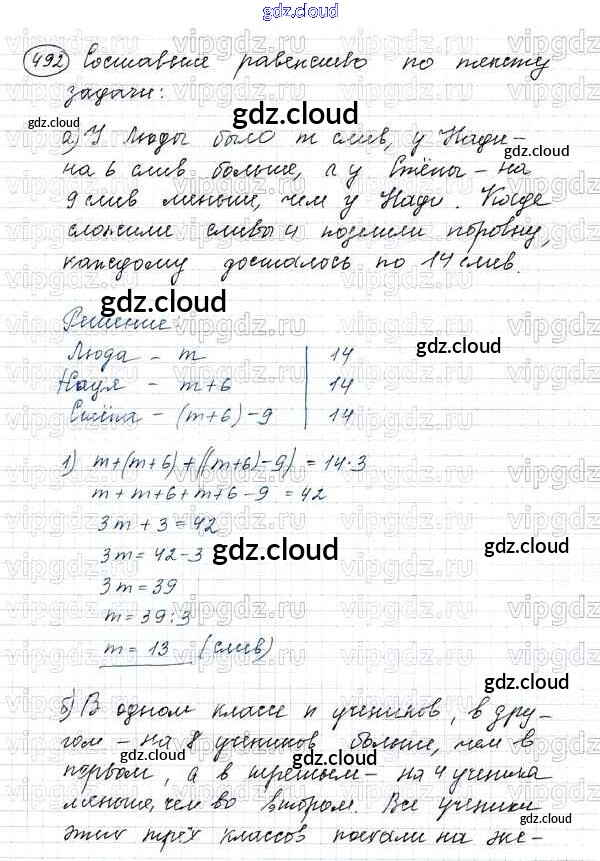 gdz.cloud
492 Составьте равенство по тексту
задачи:
а) У Люды было m слив, у Нади –
на 6 слив больше, а у Стёпы – на
9 слив меньше, чем у Нади. Когда
сложили сливы и поделили поровну,
каждому досталось по 14 слив.
Решение:
Люда – m 14
Надя – m+6 14
Стёпа – (m+6)-9 14
1) m+(m+6)+((m+6)-9) = 14·3
m+m+6+m+6-9 = 42
3m+3=42
3m=42-3
3m=39
m=39:3
m=13 (слив)
б) В одном классе n учеников, в дру-
гом – на 8 учеников больше, чем в
первом, а в третьем – на 4 ученика
меньше, чем во втором. Все ученики
этих трёх классов поехали на экс-